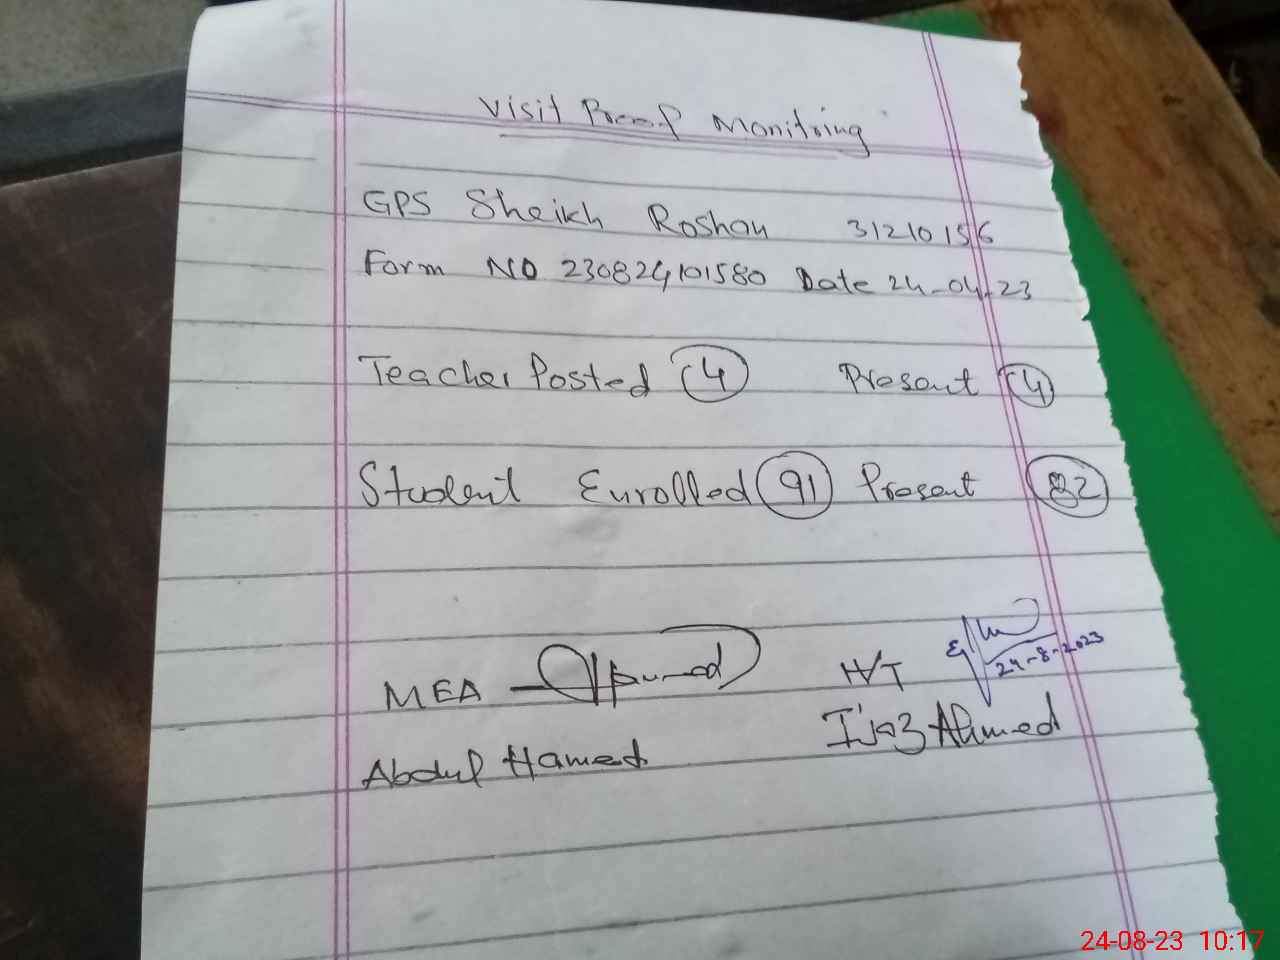 Visit Proof Monitring
GPS Sheikh Roshan 31210156
Form NO 230824101580 Date 24-04-23
Teacher Posted 4 Present 4
Student Enrolled 91 Present 82
MEA H/T 24-8-2023
Abdul Hamed I'jaz Ahmed
24-08-23 10:17